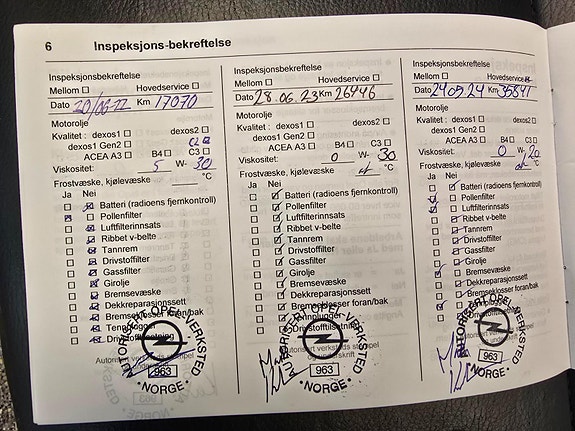 6 Inspeksjons-bekreftelse
Inspeksjonsbekreftelse
Mellom ☐ Hovedservice ☐
Dato 20/06-22 Km 17070
Motorolje
Kvalitet : dexos1 ☐ dexos2 ☐
dexos1 Gen2 ☐
ACEA A3 ☐ B4 ☐ C3 ☐
Viskositet: 5 W- 30
Frostvæske, kjølevæske °C
Ja Nei
Batteri (radioens fjernkontroll)
Pollenfilter
Luftfilterinnsats
Ribbet v-belte
Tannrem
Drivstoffilter
Gassfilter
Girolje
Bremsevæske
Dekkreparasjonssett
Bremseklosser foran/bak
Tennplugger
Autorisert verksteds stempel
AUTORISERT OPEL VERKSTED
963
NORGE
Inspeksjonsbekreftelse
Mellom ☐ Hovedservice ☐
Dato 28.06.23 Km 26446
Motorolje
Kvalitet : dexos1 ☐ dexos2 ☐
dexos1 Gen2 ☐
ACEA A3 ☐ B4 ☐ C3 ☐
Viskositet: 0 W- 30
Frostvæske, kjølevæske °C
Ja Nei
Batteri (radioens fjernkontroll)
Pollenfilter
Luftfilterinnsats
Ribbet v-belte
Tannrem
Drivstoffilter
Gassfilter
Girolje
Bremsevæske
Dekkreparasjonssett
Bremseklosser foran/bak
Tennplugger
AUTORISERT OPEL VERKSTED
963
NORGE
Inspeksjonsbekreftelse
Mellom ☐ Hovedservice
Dato 24 09 24 Km 35841
Motorolje
Kvalitet : dexos1 ☐ dexos2 ☐
dexos1 Gen2 ☐
ACEA A3 ☐ B4 ☐ C3 ☐
Viskositet: 0 W- 20
Frostvæske, kjølevæske °C
Ja Nei
Batteri (radioens fjernkontroll)
Pollenfilter
Luftfilterinnsats
Ribbet v-belte
Tannrem
Drivstoffilter
Gassfilter
Girolje
Bremsevæske
Dekkreparasjonssett
Bremseklosser foran/bak
AUTORISERT OPEL VERKSTED
963
NORGE